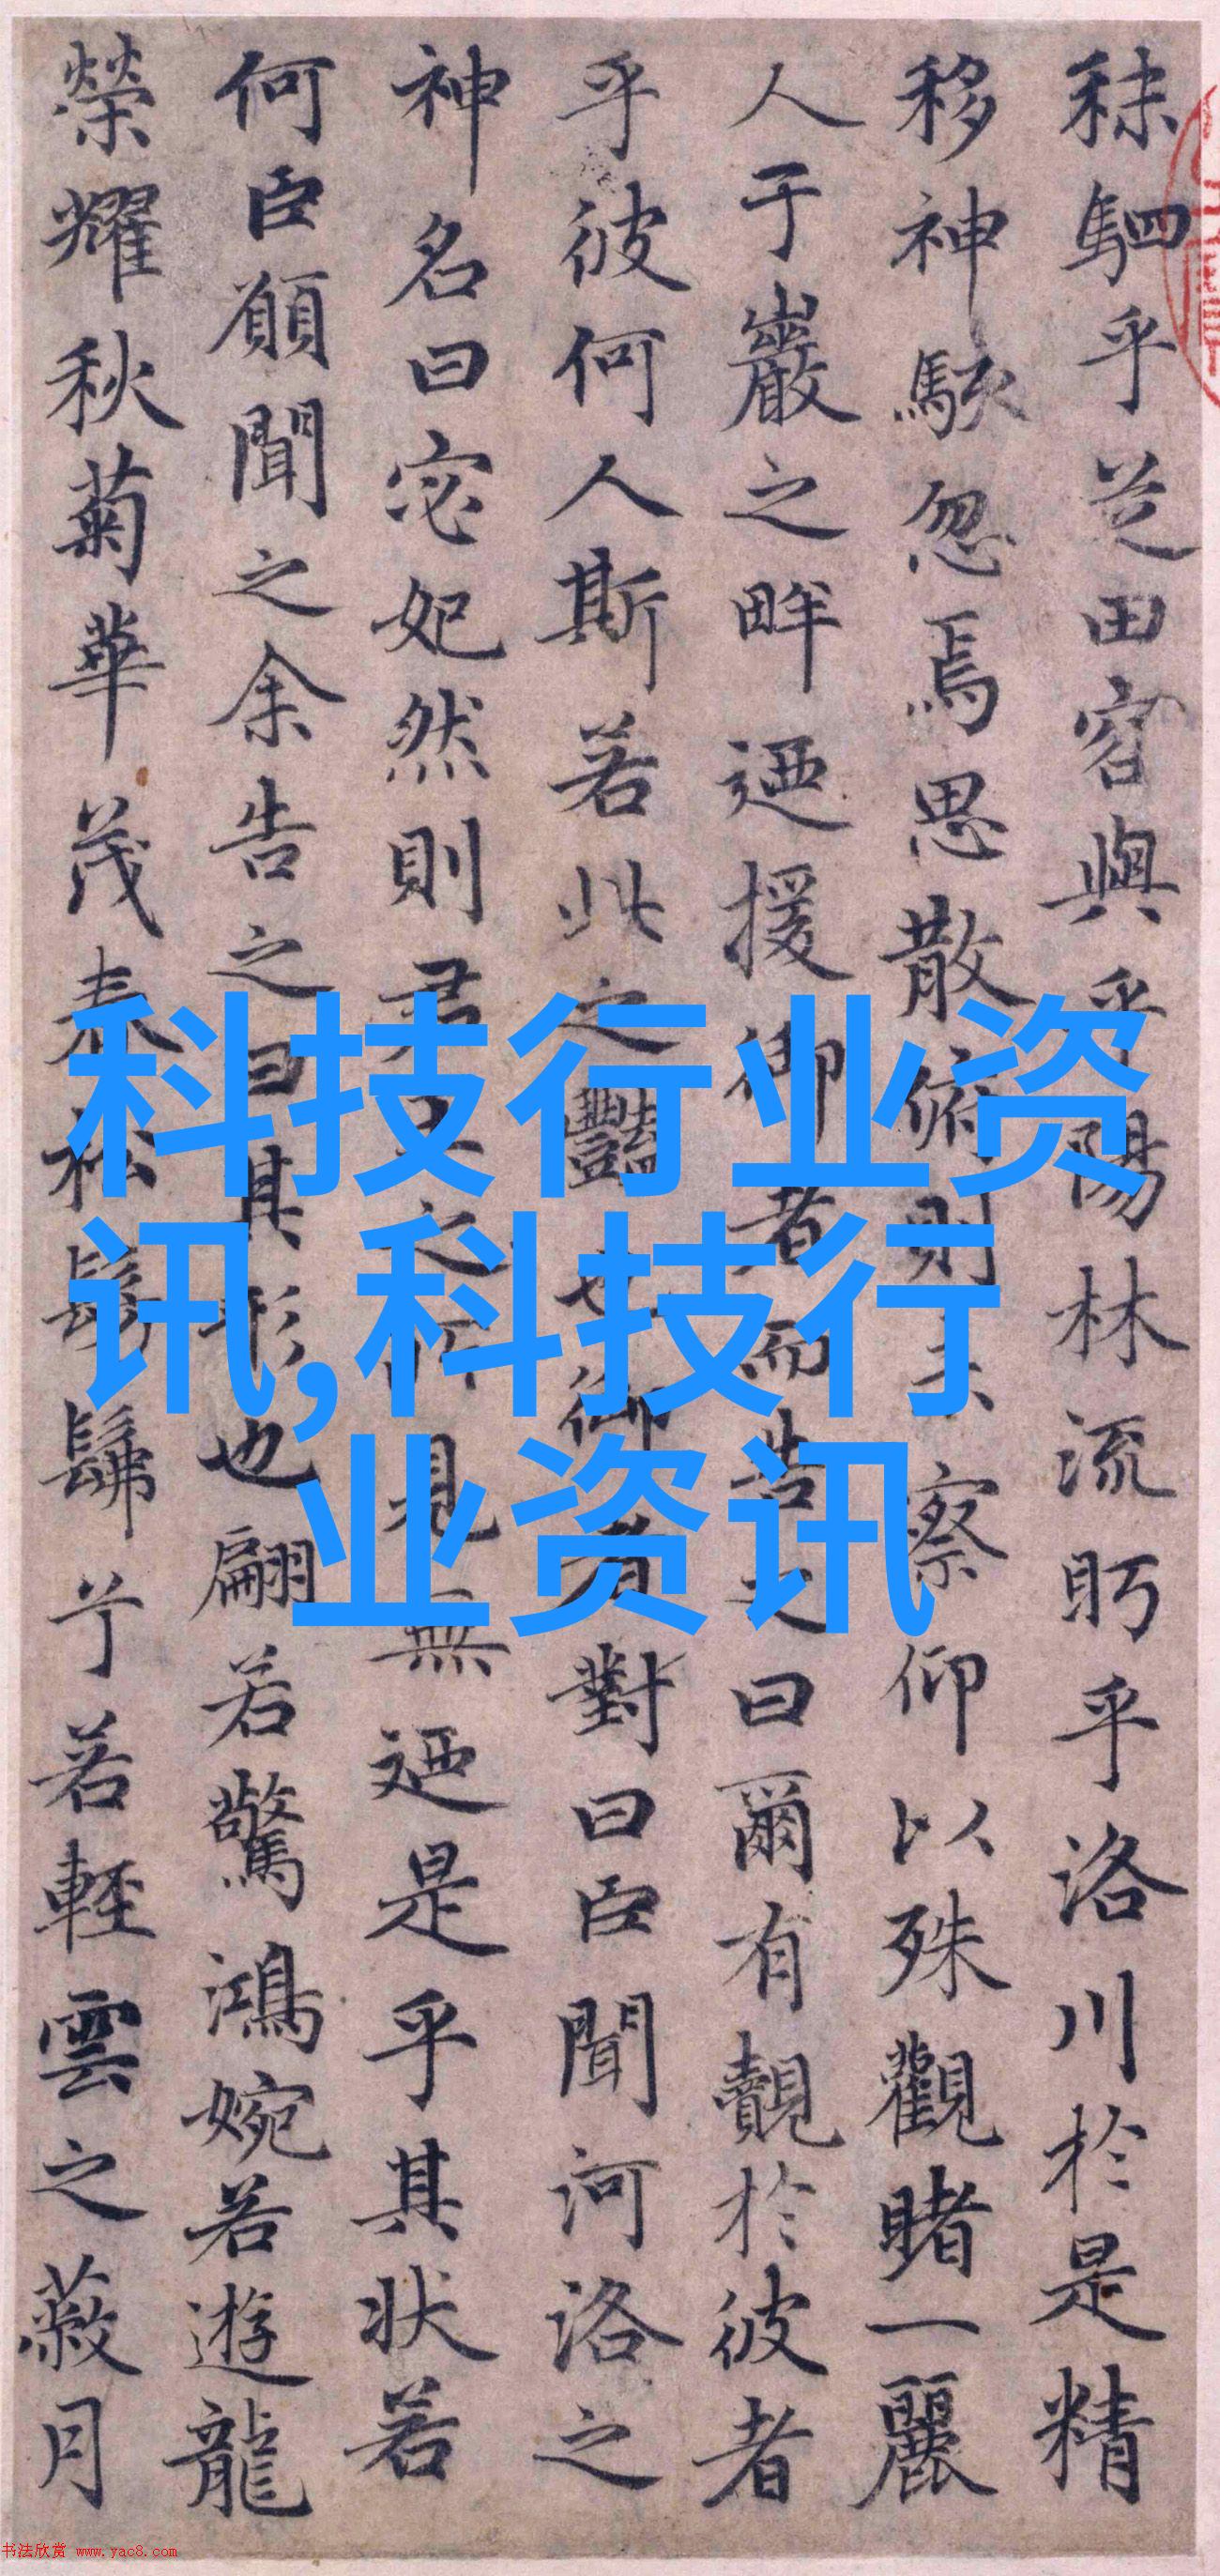 秣駟乎芝田容與乎陽林流眄乎洛川於是精
移神駭忽焉思散俯則未察仰以殊觀睹一麗
人于巖之畔迺援御者而告之曰爾有覿於彼者
乎彼何人斯若此之豔也御者對曰臣聞河洛之
神名曰宓妃然則君王之所見無迺是乎其狀若
何臣願聞之余告之曰其形也翩若驚鴻婉若遊龍
榮耀秋菊華茂春松髣髴兮若輕雲之蔽月
科技行业资
讯,科技行
业资讯
书法欣赏 www.yac8.com